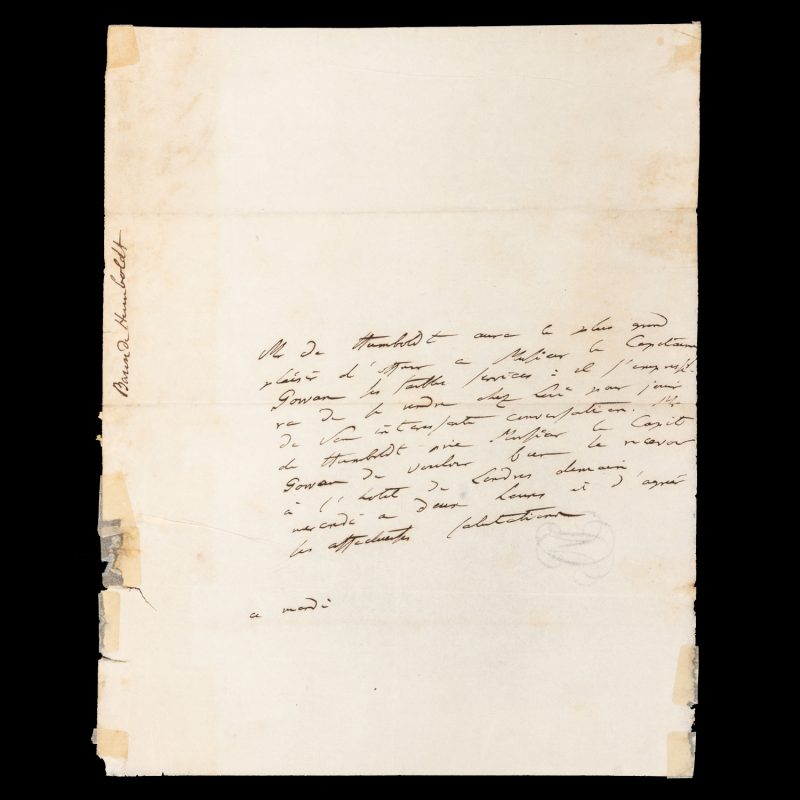 Baron de Humboldt
Mr de Humboldt aura le plus grand
plaisir d'offrir a Monsieur le Capitaine
Gowan ses faibles services : il s'empresse-
ra de se rendre chez Lui pour jouir
de Son interessante conversation. Mr
de Humboldt prie Monsieur le Capit
Gowan de vouloir bien le recevoir
à l'hotel de Londres demain
mercredi a deux heures et d'agréer
ses affectueuses salutations
a mardi